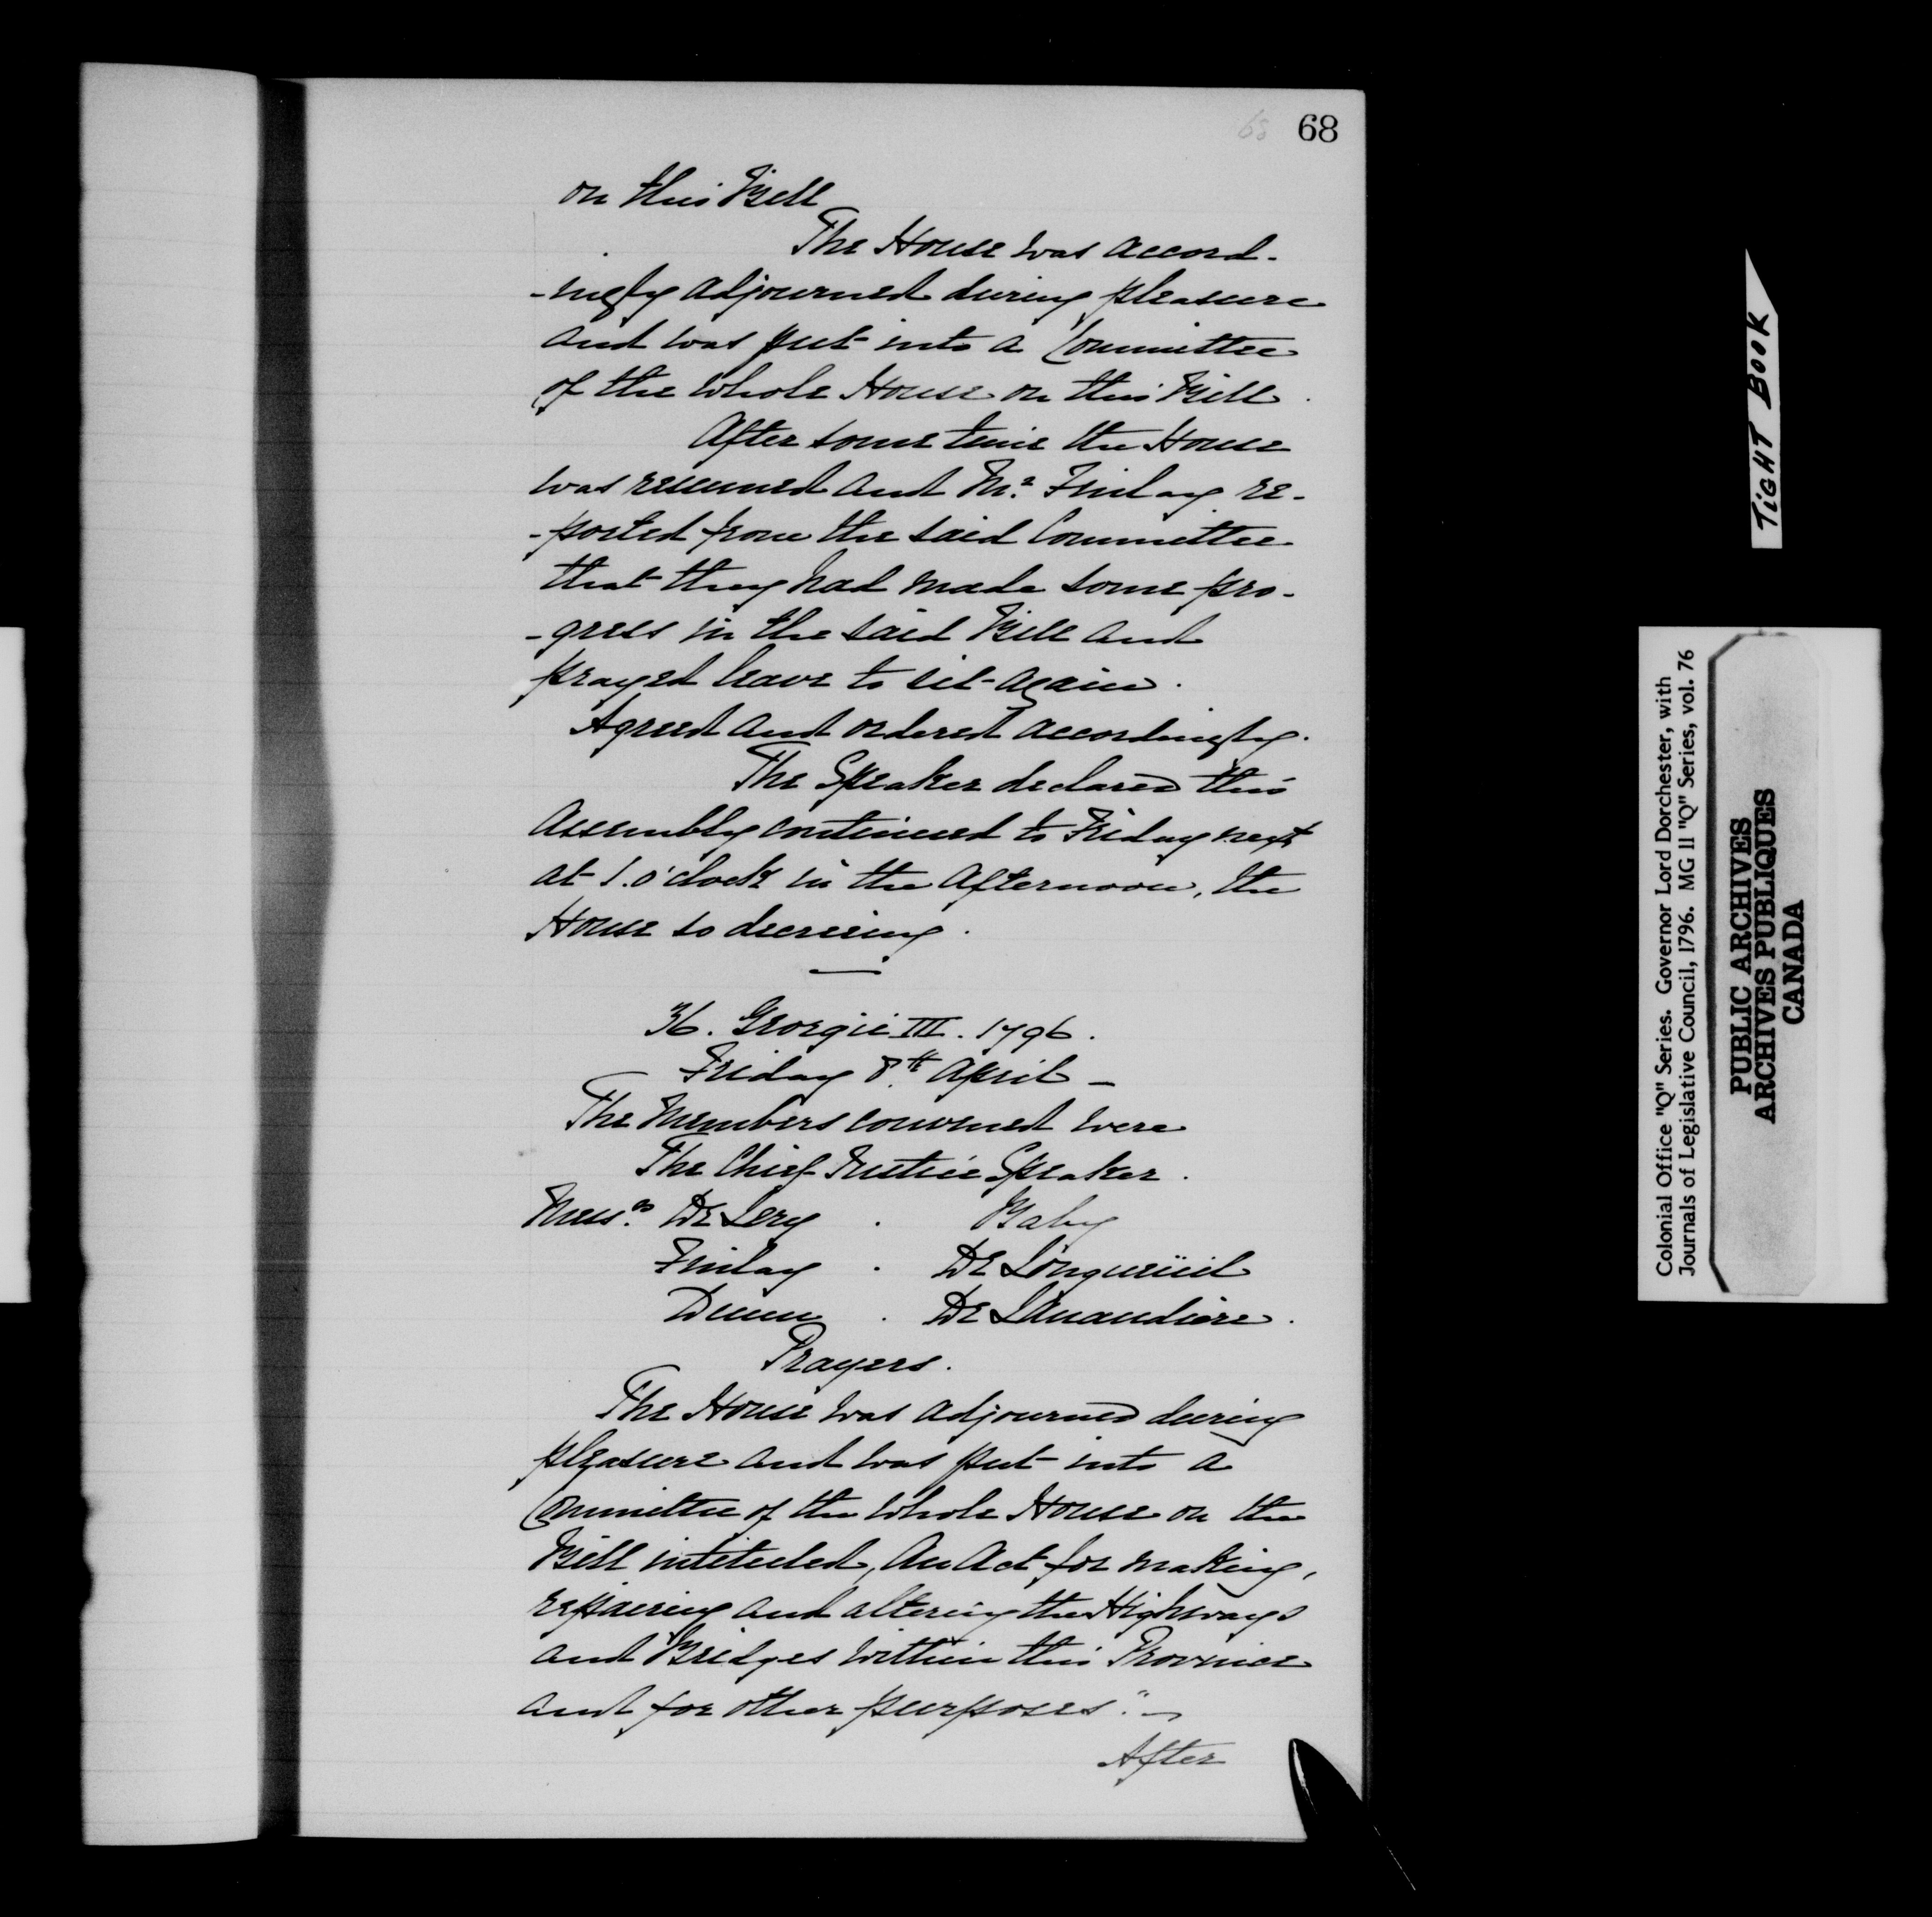 68 68
on this Bill
The House was accord-
-ingly adjourned during pleasure
and was put into a Committee
of the whole House on this Bill.
After some time the House
was resumed and Mr. Finlay re-
-ported from the said Committee
that they had made some pro-
-gress in the said Bill and
prayed leave to sit again.
Agreed and ordered accordingly.
The Speaker declared this
Assembly continued to Friday next
at 1. o'clock in the Afternoon, the
House so decreeing.
36. Georgii III. 1796.
Friday 8.th April -
The Members convened were
The Chief Justice Speaker.
Messrs. De Lery . Baby
Finlay . De Longueüil
Dunn . De Lanaudière.
Prayers.
The House was adjourned during
pleasure and was put into a
Committee of the whole House on the
Bill intituled, An Act for making,
repairing and altering the Highways
and Bridges within this Province
and for other purposes". -
After
TIGHT BOOK
Colonial Office "Q" Series. Governor Lord Dorchester, with
Journals of Legislative Council, 1796. MG 11 "Q" Series, vol. 76
PUBLIC ARCHIVES
ARCHIVES PUBLIQUES
CANADA